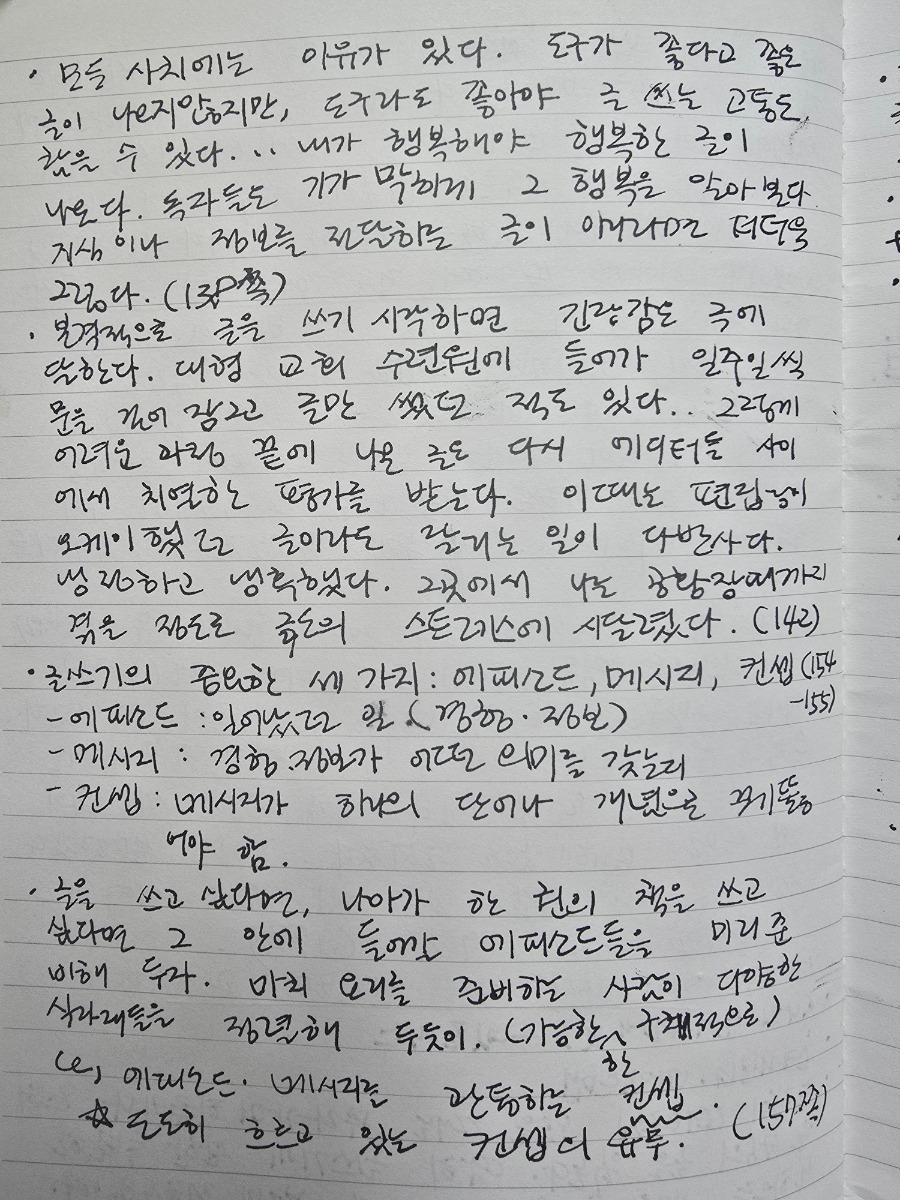 · 모든 사치에는 이유가 있다. 도구가 좋다고 좋은
글이 나오지않하지만, 도구라도 좋아야 글 쓰는 고통도
참을 수 있다... 내가 행복해야 행복한 글이
나온다. 독자들도 기가 막히게 그 행복을 알아본다
지식이나 정보를 전달하는 글이 아니라면 더더욱
그렇다. (138쪽)
· 본격적으로 글을 쓰기 시작하면 긴장감은 극에
달한다. 대형 교회 수련원에 들어가 일주일씩
문을 걸어 잠그고 글만 썼던 적도 있다.. 그렇게
어려운 과정 끝에 나온 글도 다시 에디터들 사이
에서 치열한 평가를 받는다. 이때는 편집장이
오케이했던 글이라도 잘리는 일이 다반사다.
냉정하고 냉혹했다. 그곳에서 나는 공황장애까지
겪을 정도로 극도의 스트레스에 시달렸다. (142)
· 글쓰기의 중요한 세 가지: 에피소드, 메시지, 컨셉 (154
-155)
- 에피소드 : 일어났던 일. (경험·정보)
- 메시지 : 경험·정보가 어떤 의미를 갖는지
- 컨셉 : 메시지가 하나의 단어나 개념으로 꿰뚫
어야 함.
· 글을 쓰고 싶다면, 나아가 한 권의 책을 쓰고
싶다면 그 안에 들어갈 에피소드들을 미리 준
비해 두자. 마치 요리를 준비하는 사람이 다양한
식재료들을 정렬해 두듯이. (가능한 구체적으로)
한
에피소드·메시지를 관통하는 컨셉.
☆ 도도히 흐르고 있는 컨셉의 유무. (157쪽)